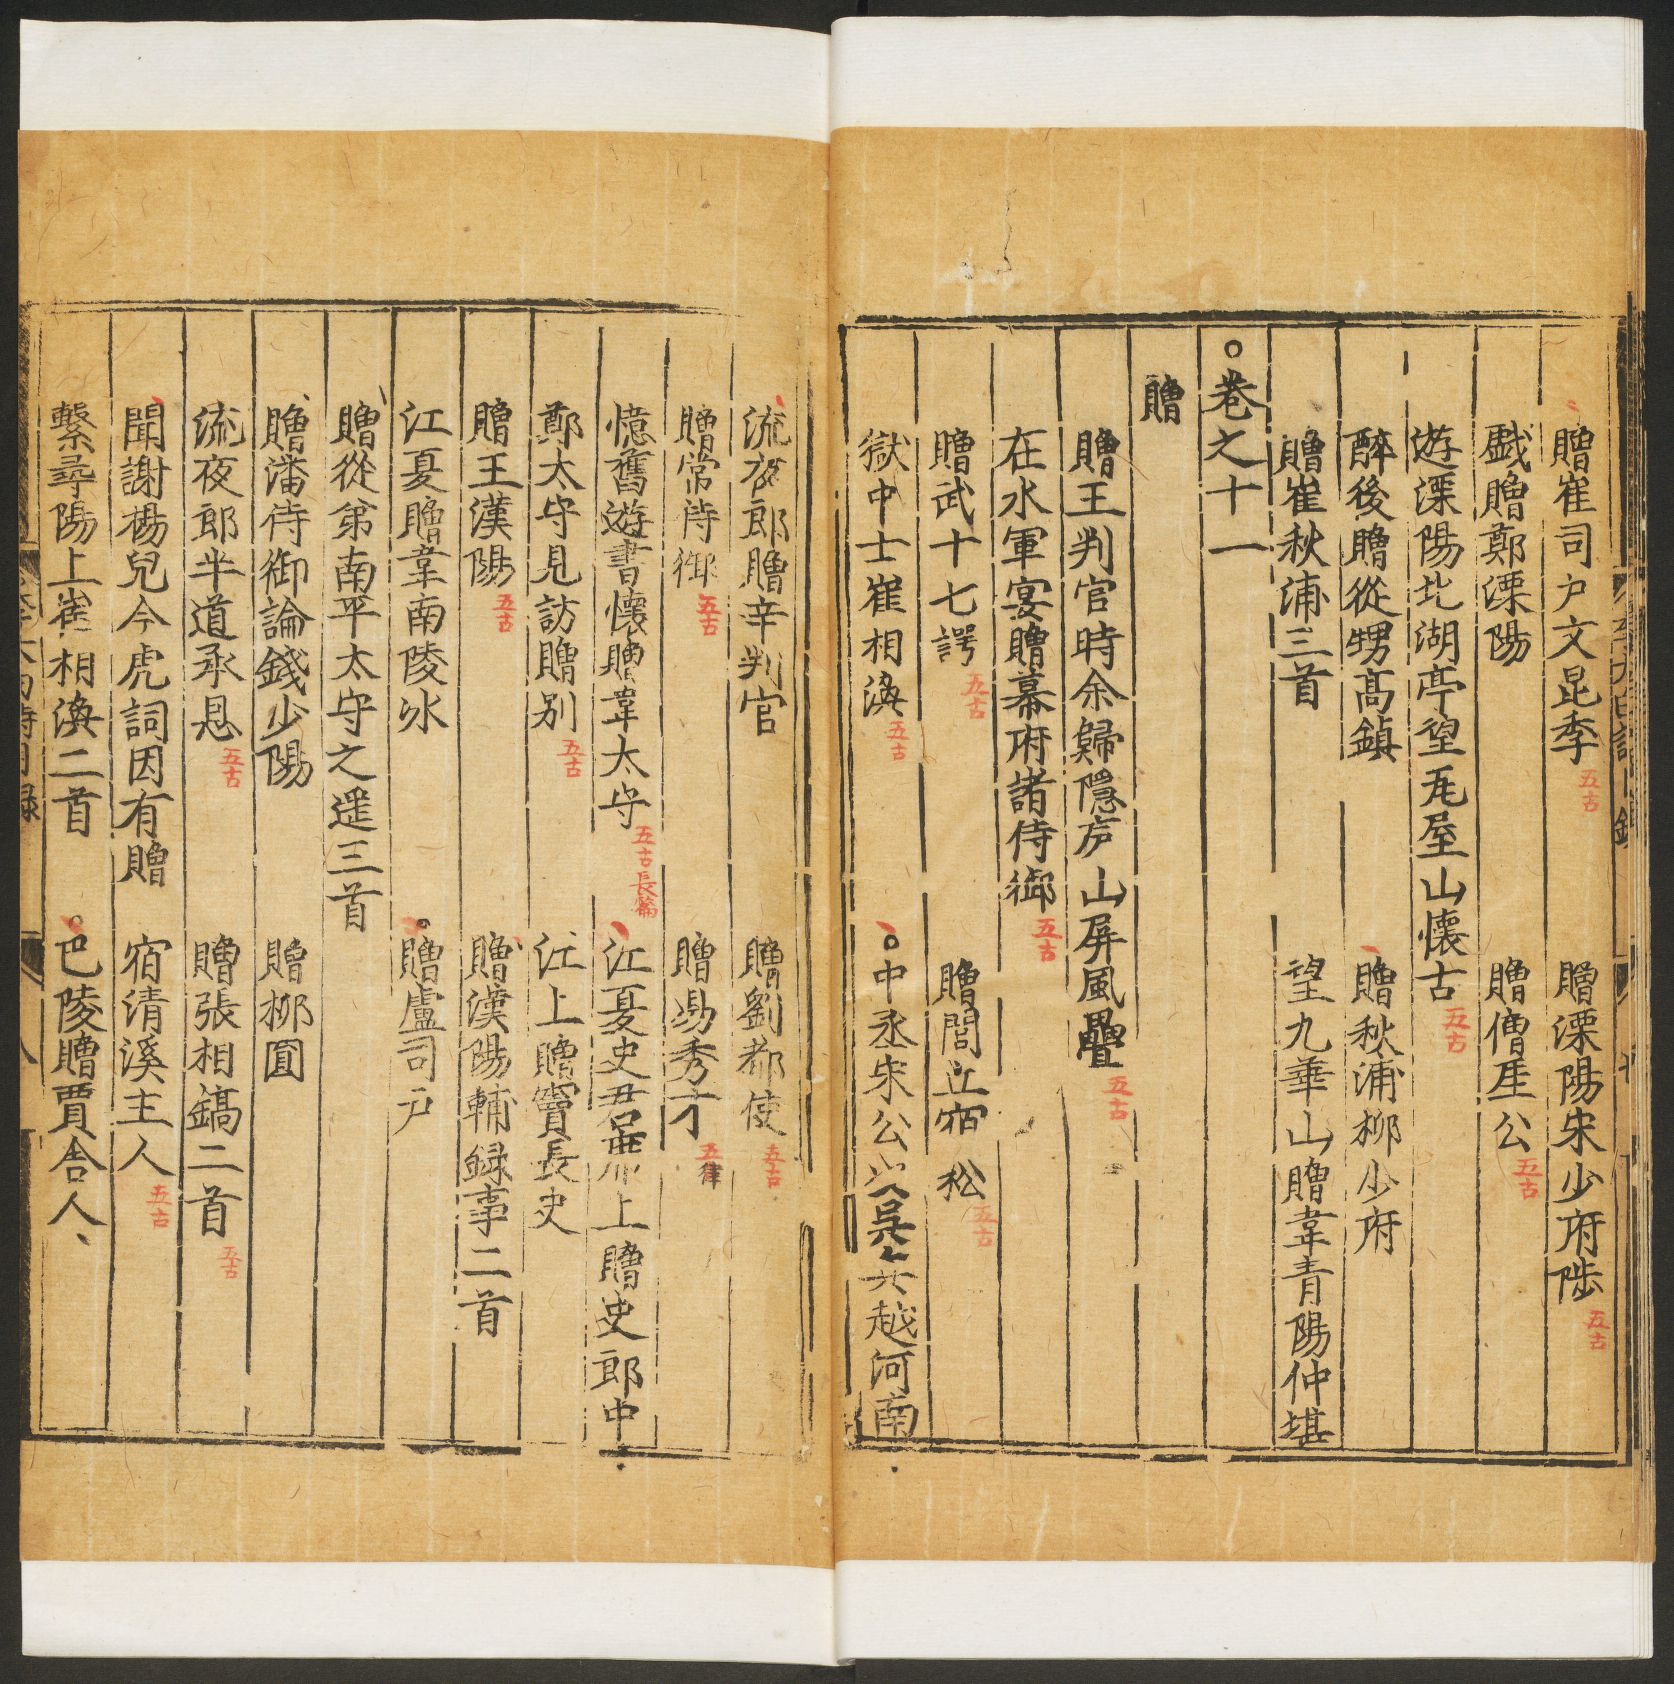 贈崔司户文昆季 五古 贈溧陽宋少府陟 五古
戯贈鄭溧陽 贈僧崖公 五古
遊溧陽北湖亭望瓦屋山懷古 五古
醉後贈從甥髙鎮 贈秋浦柳少府
贈崔秋浦三首 望九華山贈韋青陽仲堪
卷之十一
贈
贈王判官時余歸隱庐山屏風疊 五古
在水軍宴贈幕府諸侍御 五古
贈武十七諤 五古 贈閭丘宿松 五古
獄中士崔相渙 五古 中丞宋公 吳 越河南
流夜郎贈辛判官 贈劉都使 五古
贈常侍御 五古 贈易秀才 五律
憶舊遊書懷贈韋太守 五古長篇 江夏史君 上贈史郎中
鄭太守見訪贈别 五古 江上贈竇長史
贈王漢陽 五古 贈漢陽輔録事二首
江夏贈韋南陵冰 贈盧司户
贈從弟南平太守之遥三首
贈潘侍御論錢少陽 贈柳圓
流夜郎半道承恩 五古 贈張相鎬二首 五古
聞謝楊兒今虎詞因有贈 宿清溪主人 五古
繫尋陽上崔相渙二首 巴陵贈賈舍人